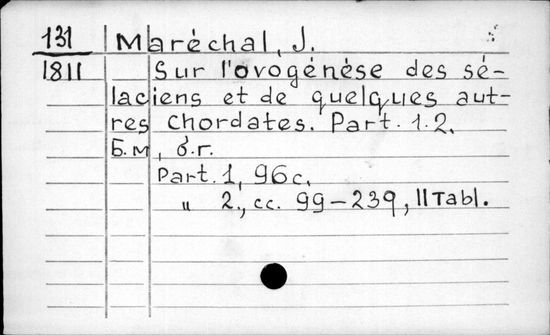 131 Maréchal, J.
1811 Sur l'ovogénèse des sé-
laciens et de quelques aut-
res chordates. Part. 1.2.
Б.м, б.г.
Part. 1, 96 с.
" 2., сс. 99-239, 11 Tabl.